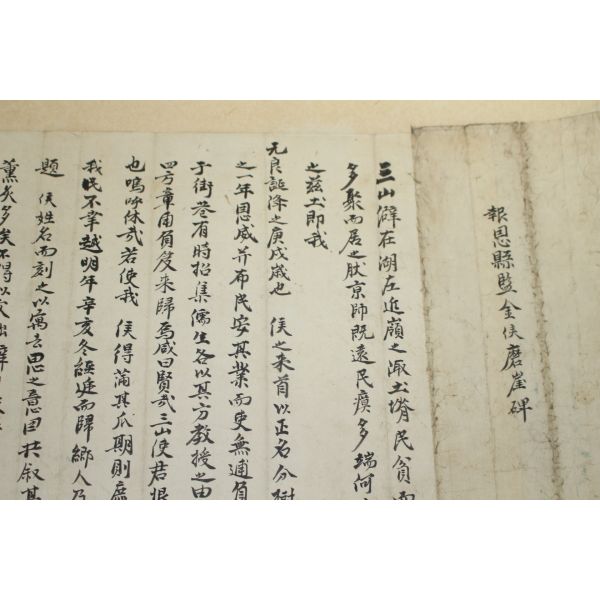 報恩縣監金侯磨崖碑
三山僻在湖左近嶺之陬土塉民貧而
多聚而居之肰京師既遠民瘼多端何
之兹土即我
元良誕降之庚戌歲也 侯之来首以正名分
之一年恩威并布民安其業而吏無逋負
于街巷有時招集儒生各以其方教授之由
四方章甫負笈来歸焉咸曰賢哉三山使君恨
也嗚呼休哉若使我 侯得蒲其瓜期則庶
我民不幸越明年辛亥冬 而歸鄉人乃
題 侯姓名而刻之以寓去思之意因共叙其
薰炙多矣不得以文出